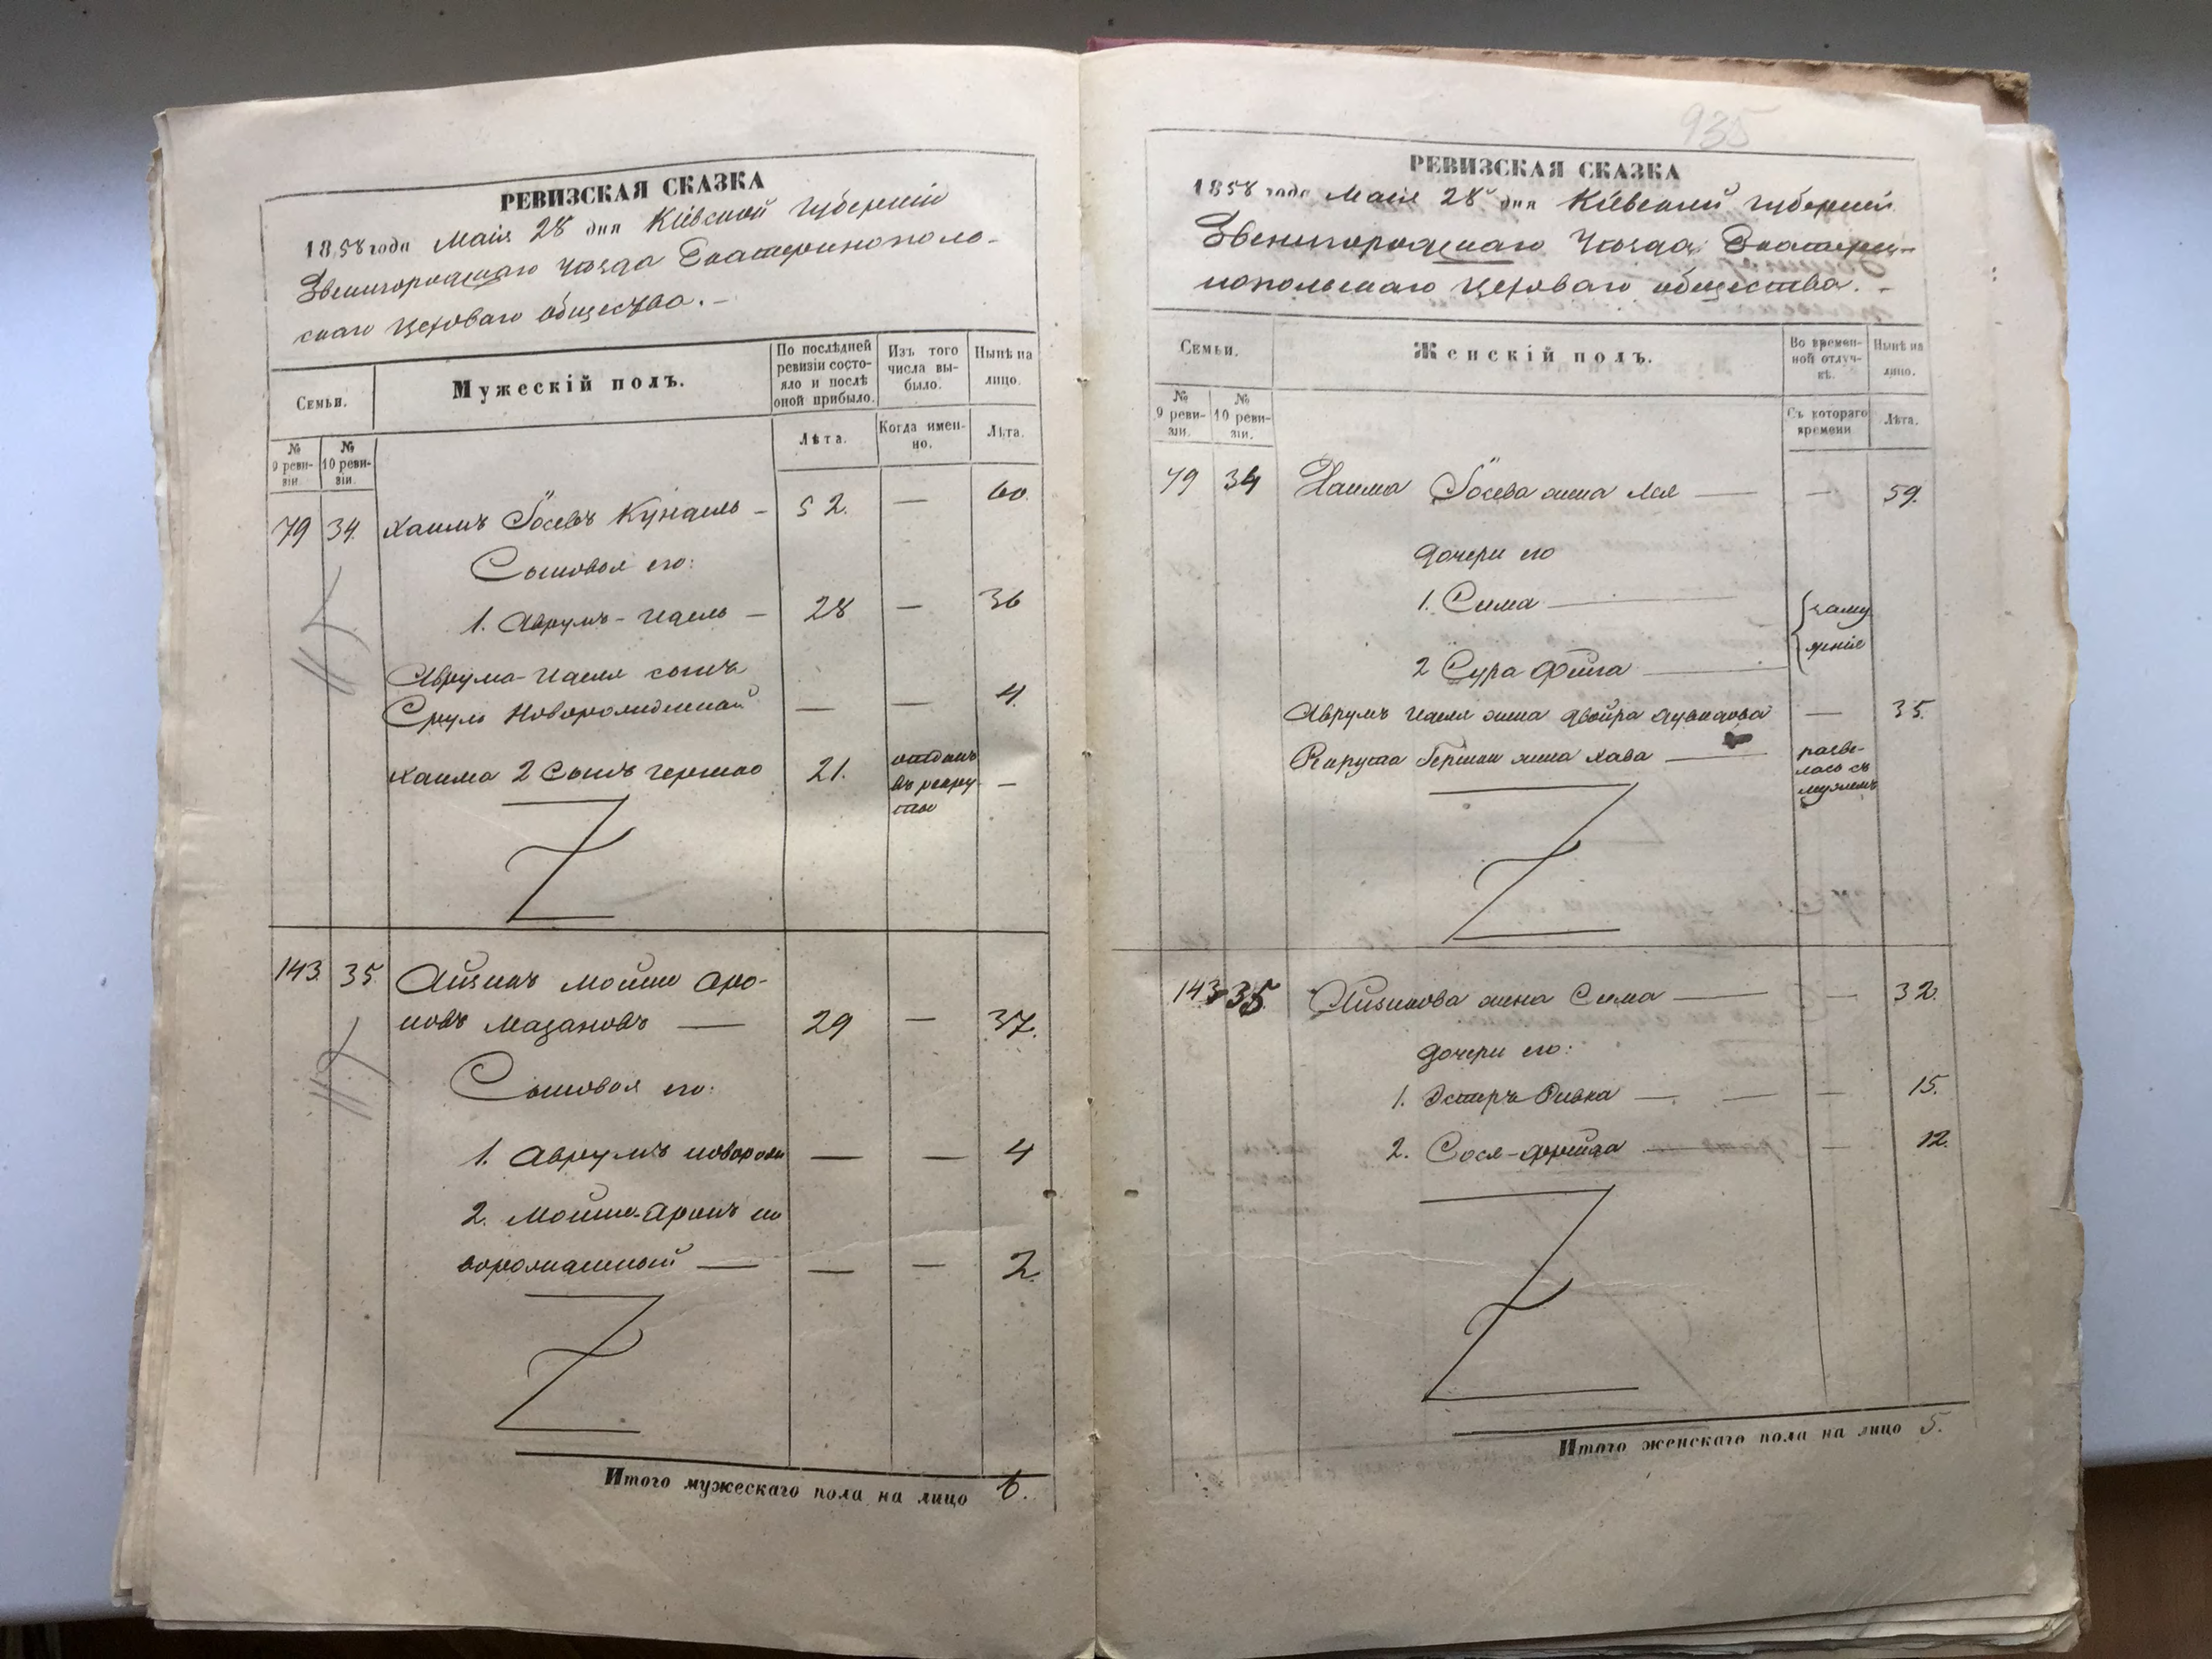 РЕВИЗСКАЯ СКАЗКА
1858 года Маія 28 дня Кіевской губерніи
Звенигородскаго уѣзда Екатеринополь-
скаго Цеховаго общества.
Семьи.
Мужескій полъ.
По послѣдней ревизіи состо-
яло и послѣ оной прибыло.
Изъ того числа вы-
было.
Нынѣ на лицо.
№ 9 реви-
зіи.
№ 10 реви-
зіи.
Лѣта.
Когда имен-
но.
Лѣта.
79 34. Хаимъ Іосевъ Кундель — 52. — 60.
Сыновья его:
1. Аврумъ-Идель — 28 — 36
Аврума-Иделя сынъ
Сруль Новорожденной — — 4.
Хаима 2 Сынъ Гершко 21. отданъ въ рекру-
ты —
143. 35. Айзикъ Мошко Аро-
новъ Мазановъ — 29 — 37.
Сыновья его:
1. Аврумъ новорож — — 4
2. Мошко-Аронъ но
ворожденный — — — 2.
Итого мужескаго пола на лицо 6.
935
РЕВИЗСКАЯ СКАЗКА
1858 года Маія 28 дня Кіевской губерніи
Звенигородскаго Уѣзда Екатери-
нопольскаго Цеховаго общества.
Семьи.
Женскій полъ.
Во времен-
ной отлуч-
кѣ.
Нынѣ на лицо.
№ 9 реви-
зіи.
№ 10 реви-
зіи.
Съ котораго времени
Лѣта.
79 34 Хаима Іосева жена Лея — — 59.
Дочери его
1. Сима — заму
2 Сура Фейга — жніе
Аврумъ Иделя жена Двойра — 35.
Гершки жена Хава — разве-
лась съ
мужемъ
143 35. Айзикова жена Сима — — 32.
Дочери его:
1. Эстеръ Ривка — — — 15.
2. Сося-Фрейда — — 12.
Итого женскаго пола на лицо 5.